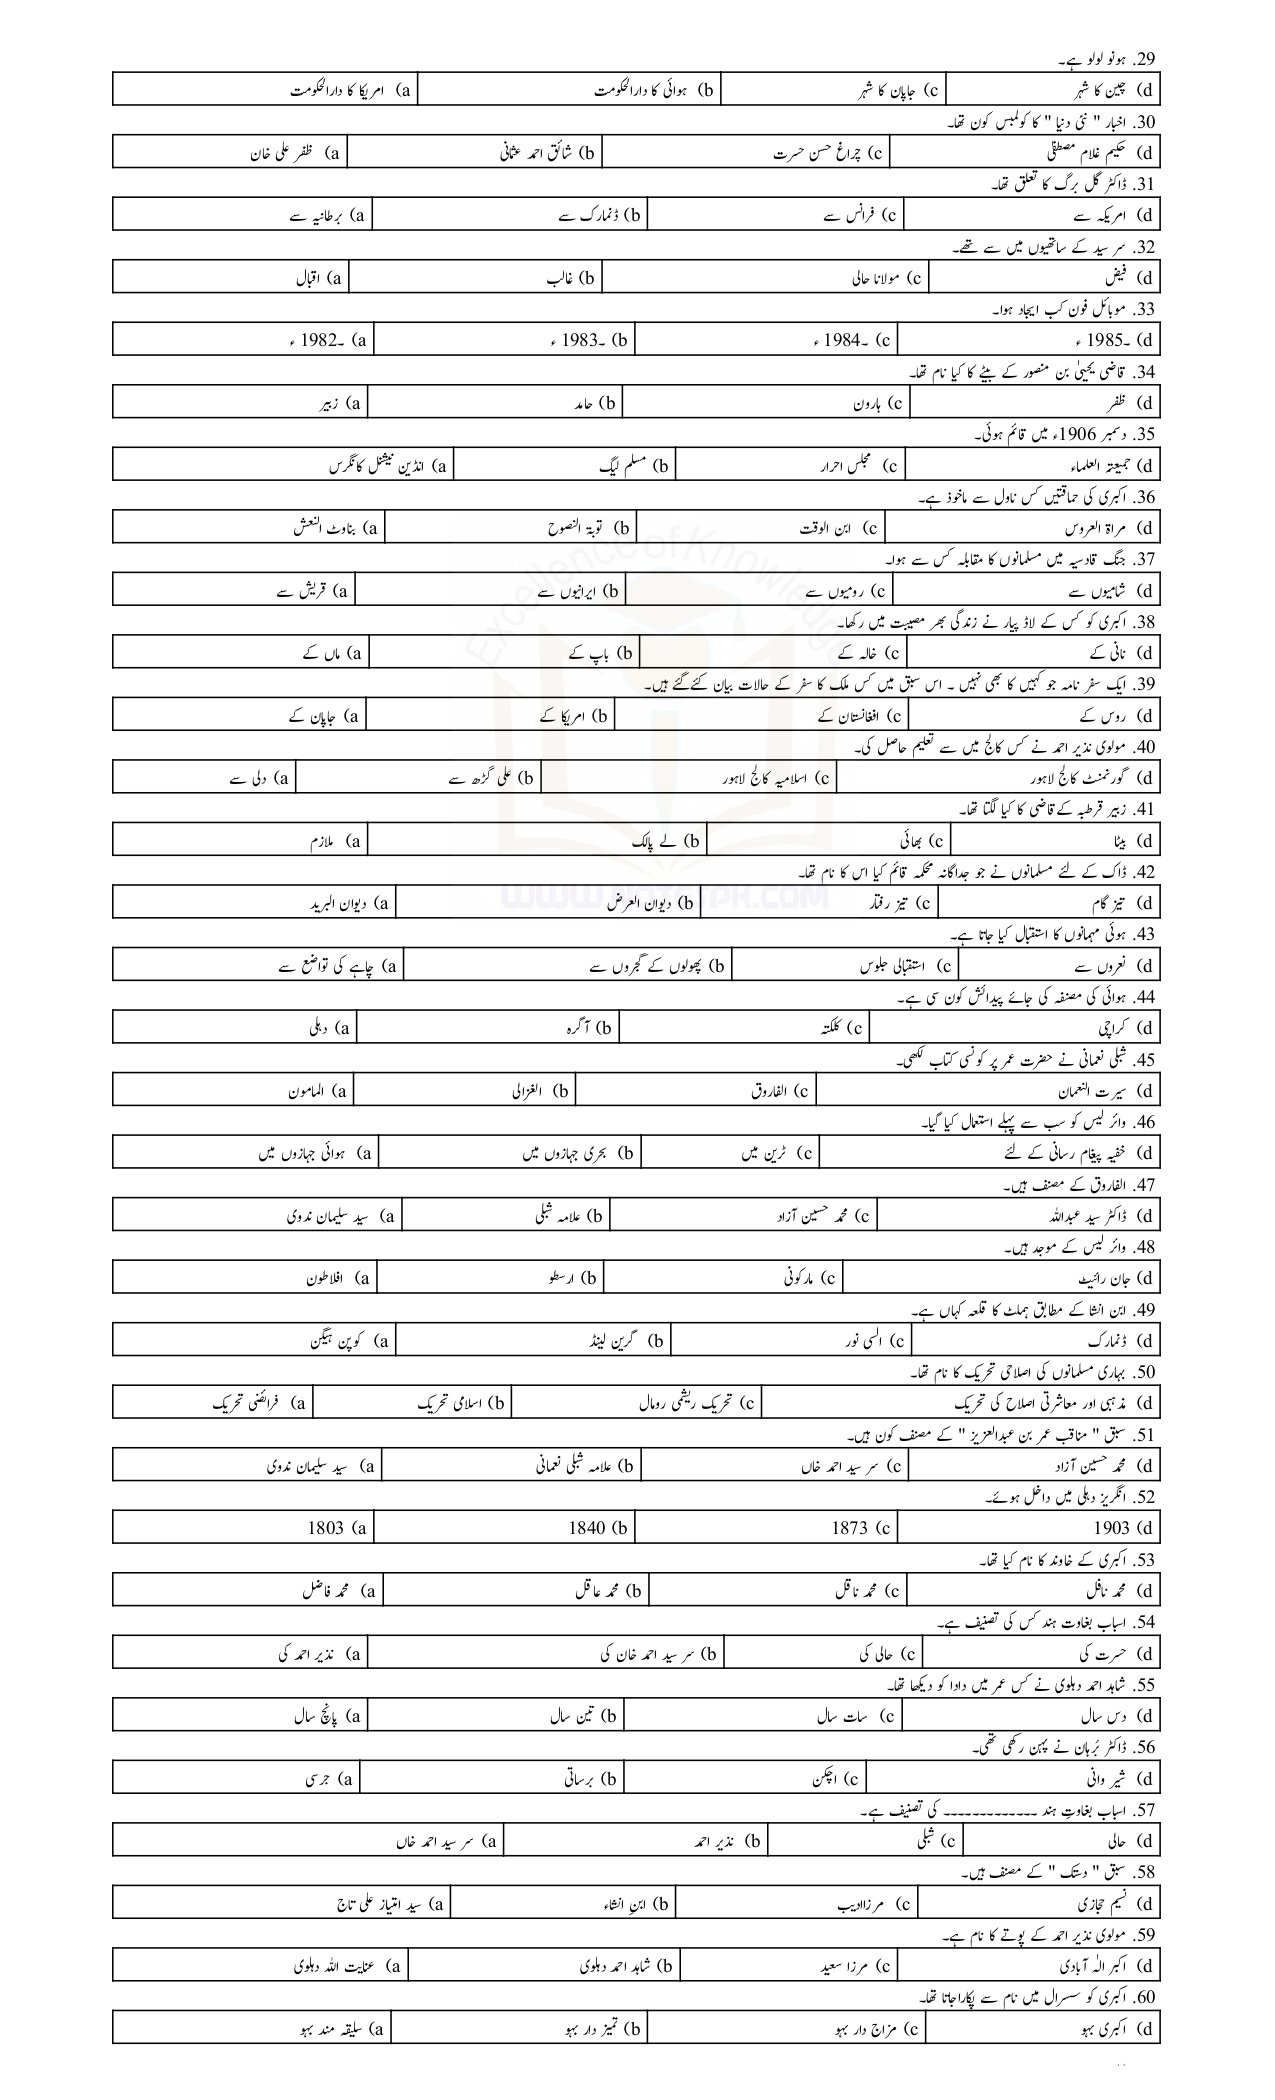 29. ہونو لولو ہے۔
d) چین کا شہر c) جاپان کا شہر b) ہوائی کا دارالحکومت a) امریکا کا دارالحکومت
30. اخبار " نئی دنیا " کا کولمبس کون تھا۔
d) حکیم غلام مصطفٰی c) چراغ حسن حسرت b) شائق احمد عثمانی a) ظفر علی خان
31. ڈاکٹر گل برگ کا تعلق تھا۔
d) امریکہ سے c) فرانس سے b) ڈنمارک سے a) برطانیہ سے
32. سر سید کے ساتھیوں میں سے تھے۔
d) فیض c) مولانا حالی b) غالب a) اقبال
33. موبائل فون کب ایجاد ہوا۔
d) ۔1985 ء c) ۔1984 ء b) ۔1983 ء a) ۔1982 ء
34. قاضی یحییٰ بن منصور کے بیٹے کا کیا نام تھا۔
d) ظفر c) ہارون b) حامد a) زبیر
35. دسمبر 1906ء میں قائم ہوئی۔
d) جمیعتہ العلماء c) مجلس احرار b) مسلم لیگ a) انڈین نیشنل کانگرس
36. اکبری کی حماقتیں کس ناول سے ماخوذ ہے۔
d) مراۃ العروس c) ابن الوقت b) توبۃ النصوح a) بناوٹ النعش
37. جنگ قادسیہ میں مسلمانوں کا مقابلہ کس سے ہوا۔
d) شامیوں سے c) رومیوں سے b) ایرانیوں سے a) قریش سے
38. اکبری کو کس کے لاڈ پیار نے زندگی بھر مصیبت میں رکھا۔
d) نانی کے c) خالہ کے b) باپ کے a) ماں کے
39. ایک سفر نامہ جو کہیں کا بھی نہیں ۔ اس سبق میں کس ملک کا سفر کے حالات بیان کئے گئے ہیں۔
d) روس کے c) افغانستان کے b) امریکا کے a) جاپان کے
40. مولوی نذیر احمد نے کس کالج میں سے تعلیم حاصل کی۔
d) گورنمنٹ کالج لاہور c) اسلامیہ کالج لاہور b) علی گڑھ سے a) دلی سے
41. زبیر قرطبہ کے قاضی کا کیا لگتا تھا۔
d) بیٹا c) بھائی b) لے پالک a) ملازم
42. ڈاک کے لئے مسلمانوں نے جو جداگانہ محکمہ قائم کیا اس کا نام تھا۔
d) تیز گام c) تیز رفتار b) دیوان العرض a) دیوان البرید
43. ہوئی مہمانوں کا استقبال کیا جاتا ہے۔
d) نعروں سے c) استقبالی جلوس b) پھولوں کے گجروں سے a) چاہے کی تواضع سے
44. ہوائی کی مصنفہ کی جائے پیدائش کون سی ہے۔
d) کراچی c) کلکتہ b) آگرہ a) دہلی
45. شبلی نعمانی نے حضرت عمر پر کونسی کتاب لکھی۔
d) سیرت النعمان c) الفاروق b) الغزالی a) المامون
46. وائر لیس کو سب سے پہلے استعمال کیا گیا۔
d) خفیہ پیغام رسانی کے لئے c) ٹرین میں b) بحری جہازوں میں a) ہوائی جہازوں میں
47. الفاروق کے مصنف ہیں۔
d) ڈاکٹر سید عبداللہ c) محمد حسین آزاد b) علامہ شبلی a) سید سلیمان ندوی
48. وائر لیس کے موجد ہیں۔
d) جان رائیٹ c) مارکونی b) ارسطو a) افلاطون
49. ابن انشا کے مطابق ہملٹ کا قلعہ کہاں ہے۔
d) ڈنمارک c) السی نور b) گرین لینڈ a) کوپن ہیگن
50. بہاری مسلمانوں کی اصلاحی تحریک کا نام تھا۔
d) مذہبی اور معاشرتی اصلاح کی تحریک c) تحریک ریشمی رومال b) اسلامی تحریک a) فرائضی تحریک
51. سبق " مناقب عمر بن عبدالعزیز " کے مصنف کون ہیں۔
d) محمد حسین آزاد c) سر سید احمد خاں b) علامہ شبلی نعمانی a) سید سلیمان ندوی
52. انگریز دہلی میں داخل ہوئے۔
d) 1903 c) 1873 b) 1840 a) 1803
53. اکبری کے خاوند کا نام کیا تھا۔
d) محمد نافل c) محمد ناقل b) محمد عاقل a) محمد فاضل
54. اسباب بغاوت ہند کس کی تصنیف ہے۔
d) حسرت کی c) حالی کی b) سر سید احمد خان کی a) نذیر احمد کی
55. شاہد احمد دہلوی نے کس عمر میں دادا کو دیکھا تھا۔
d) دس سال c) سات سال b) تین سال a) پانچ سال
56. ڈاکٹر بُرہان نے پہن رکھی تھی۔
d) شیر وانی c) اچکن b) برساتی a) جرسی
57. اسباب بغاوتِ ہند ------------- کی تصنیف ہے۔
d) حالی c) شبلی b) نذیر احمد a) سر سید احمد خاں
58. سبق " دستک " کے مصنف ہیں۔
d) نسیم حجازی c) مرزاادیب b) ابنِ انشاء a) سید امتیاز علی تاج
59. مولوی نذیر احمد کے پوتے کا نام ہے۔
d) اکبر الہٰ آبادی c) مرزا سعید b) شاہد احمد دہلوی a) عنایت اللہ دہلوی
60. اکبری کو سسرال میں نام سے پکارا جاتا تھا۔
d) اکبری بہو c) مزاج دار بہو b) تمیز دار بہو a) سلیقہ مند بہو
Excellence of Knowledge
WWW.NOTESPK.COM